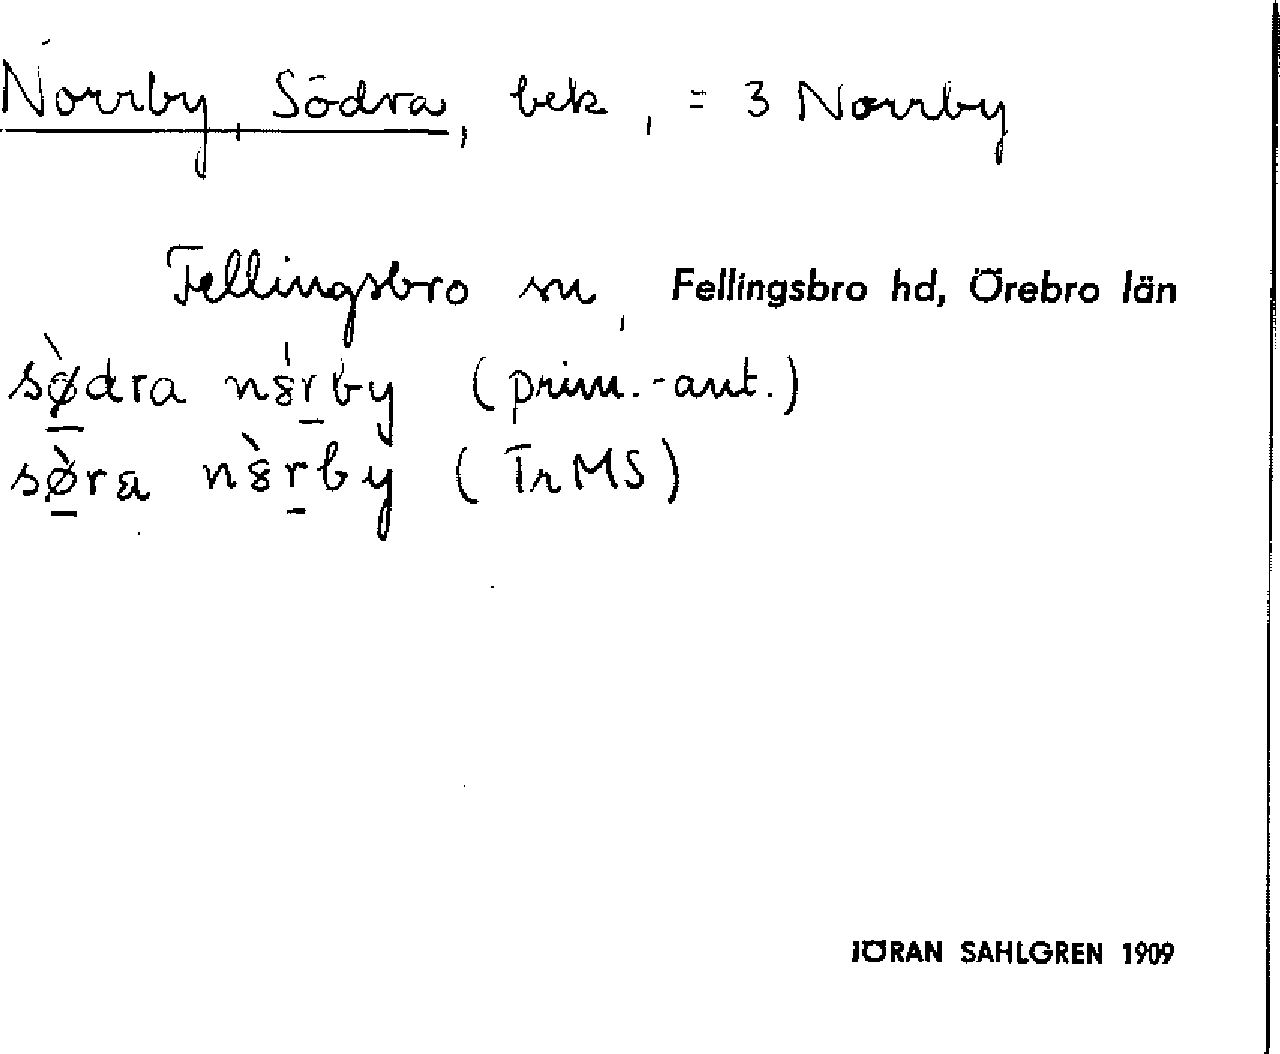 Norrby, Södra, bek, = 3 Norrby
Fellingsbro sn, Fellingsbro hd, Örebro län
sø̀dra n8́rby (prim.-ant.)
sø̀ra n8̀rby (TrMS)
JÖRAN SAHLGREN 1909